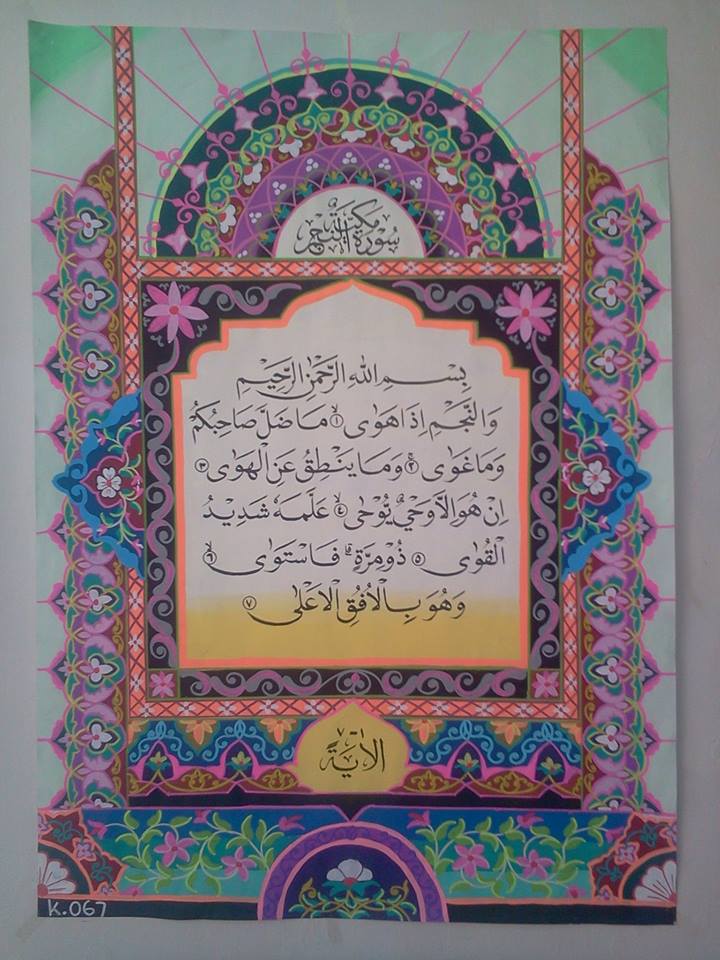 سُورَةُ النَّجْمِ مَكِّيَّةٌ
بِسْمِ اللهِ الرَّحْمٰنِ الرَّحِيْمِ
وَالنَّجْمِ اِذَا هَوٰى ۙ﴿١﴾ مَا ضَلَّ صَاحِبُكُمْ
وَمَا غَوٰى ۚ﴿٢﴾ وَمَا يَنْطِقُ عَنِ الْهَوٰى ﴿٣﴾
اِنْ هُوَ اِلَّا وَحْيٌ يُّوْحٰى ۙ﴿٤﴾ عَلَّمَهٗ شَدِيْدُ
الْقُوٰى ﴿٥﴾ ذُوْ مِرَّةٍ ۗ فَاسْتَوٰى ۙ﴿٦﴾
وَهُوَ بِالْاُفُقِ الْاَعْلٰى ﴿٧﴾
الْاٰيَةَ
K.067